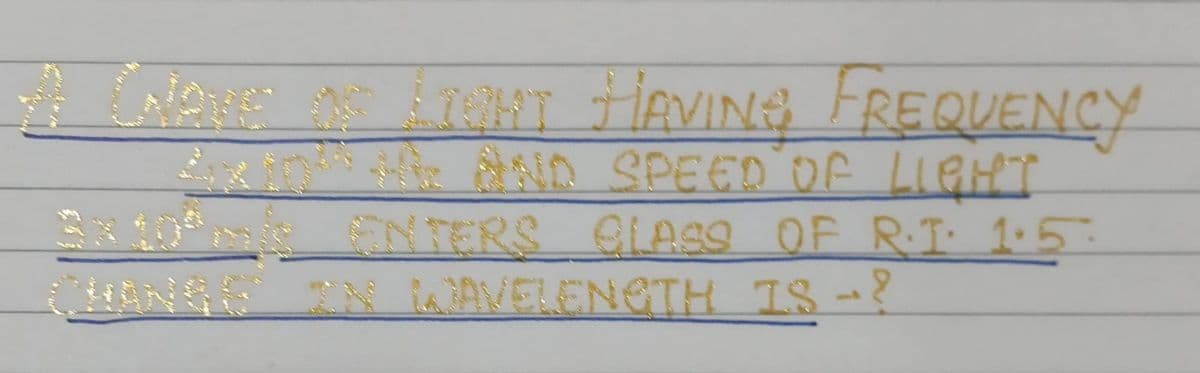 A WAVE OF LIGHT HAVING FREQUENCY
4×10¹⁴ Hz AND SPEED OF LIGHT
3×10⁸ m/s ENTERS GLASS OF R.I. 1.5.
CHANGE IN WAVELENGTH IS -?